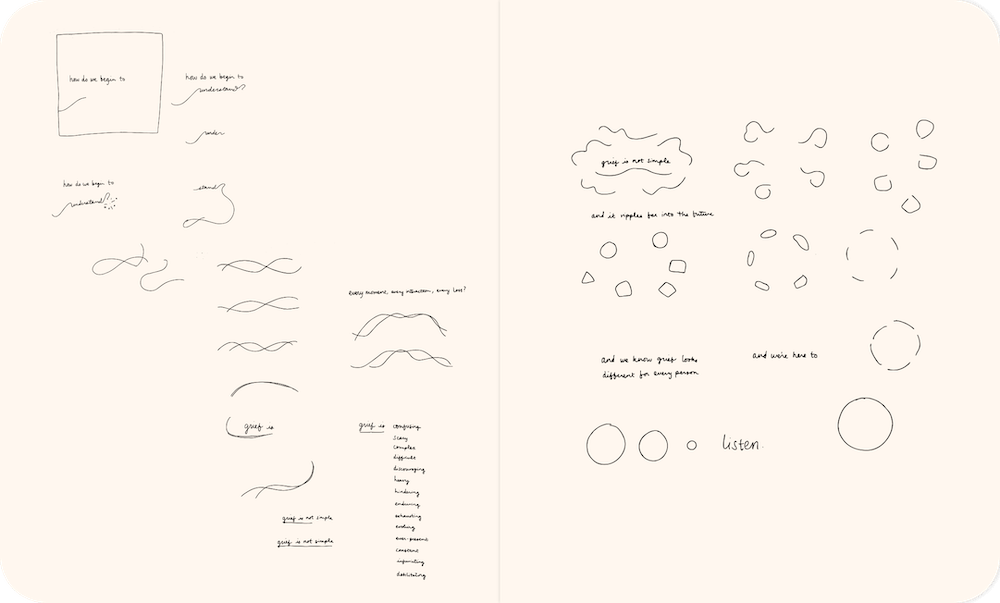 how do we begin to
how do we begin to
understand?
under
how do we begin to
understand?
stand
every moment, every interaction, every loss?
grief is
grief is confusing
scary
complex
difficult
discouraging
heavy
hindering
enduring
exhausting
evolving
ever-present
constant
debilitating
grief is not simple
grief is not simple
grief is not simple
and it ripples far into the future
and we know grief looks
different for every person
and we're here to
listen.